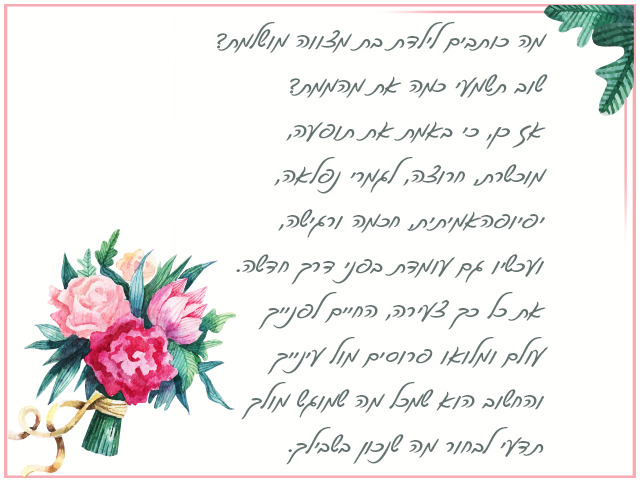 מה כותבים לילדת בת מצווה מושלמת?
שוב תשמעי כמה את מהממת?
אז כן, כי באמת את תופעה,
מוכשרת, חרוצה, לגמרי נפלאה,
יפיופהאמיתית, חכמה ורגישה,
ועכשיו גם עומדת בפני דרך חדשה.
את כל כך צעירה, החיים לפנייך
עולם ומלואו פרוסים מול עינייך
והחשוב הוא שמכל מה שמוגש מולך
תדעי לבחור מה שנכון בשבילך.